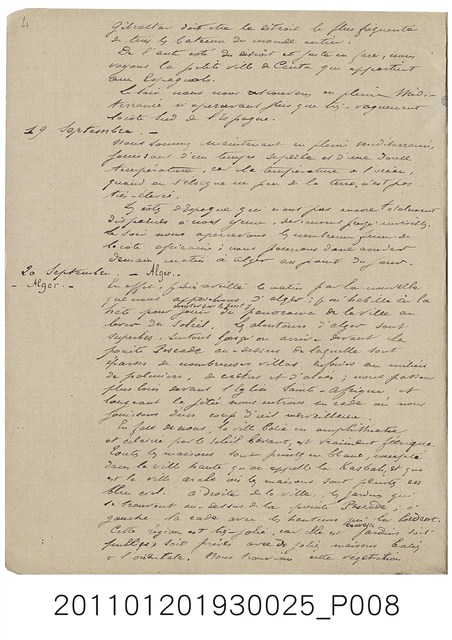 4
Gibraltar doit être le détroit le plus fréquenté
de tous les bateaux du monde entier.
De l'autre côté du détroit et juste en face, nous
voyons la petite ville de Ceuta qui appartient
aux Espagnols.
Le soir nous nous trouvons en pleine Médi-
terranée n'apercevant plus que très vaguement
la côte sud de l'Espagne.
19 Septembre. -
Nous sommes maintenant en pleine méditerranée,
jouissant d'un temps superbe et d'une douce
température, car la température a l'océan,
quand on s'éloigne un peu de la terre, n'est pas
très élevée.
Les côtes d'Espagne qui n'ont pas encore totalement
disparues à nos yeux, deviennent presque invisibles.
Le soir nous apercevons les
la côte africaine; nous pensons donc arriver
demain matin à Alger au point du jour.
20 Septembre. - Alger. -
- Alger. -
En effet, je fus réveillé le matin par la nouvelle
que nous approchions d'Alger; je m'habille à la
hâte pour jouir du panorama de la ville au
lever du soleil. Les alentours d'Alger sont
superbes, surtout lorsqu'on arrive devant la
pointe Pescade au-dessus de laquelle sont
éparses de nombreuses villas enfouies au milieu
de palmiers, de cactus et d'aloès; nous passons
plus loin devant l'Eglise Sainte-Afrique et
longeant la jetée nous entrons en rade où nous
jouissons d'un coup d'œil merveilleux.
En face de nous, la ville bâtie en amphithéâtre
et éclairée par le soleil levant, est vraiment féerique.
Toutes les maisons sont peintes en blanc, excepté
dans la ville haute qu'on appelle la Kasbah, et qui
est la ville arabe où les maisons sont peintes en
bleu ciel. A droite de la ville, les jardins qui
se trouvent au-dessus de la pointe Pescade; à
gauche la rade avec les hauteurs qui la bordent.
Cette région est très-jolie, car elle est couverte de jardins soit
publics, soit privés avec de jolies maisons bâties
à l'orientale. Nous trouvons cette végétation
201101201930025_P008